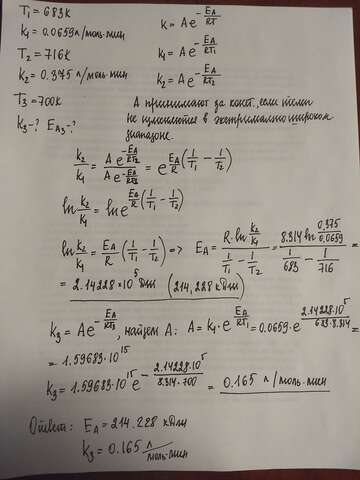 T₁ = 683К K = A e^(-Eₐ/RT)
K₁ = 0.0659 л/моль·мин K₁ = A e^(-Eₐ/RT₁)
T₂ = 716К K₂ = A e^(-Eₐ/RT₂)
K₂ = 0.375 л/моль·мин
T₃ = 700К А принимают за конст., если темп.
K₃ - ? Eₐ₃ - ? не изменяется в экстримально широком
диапазоне.
K₂/K₁ = A e^(-Eₐ/RT₂) / A e^(-Eₐ/RT₁) = e^(Eₐ/R (1/T₁ - 1/T₂))
ln K₂/K₁ = ln e^(Eₐ/R (1/T₁ - 1/T₂))
ln K₂/K₁ = Eₐ/R (1/T₁ - 1/T₂) => Eₐ = R·ln K₂/K₁ / (1/T₁ - 1/T₂) = 8.314 ln 0.375/0.0659 / (1/683 - 1/716) =
= 2.14228 × 10⁵ Дж (214,228 кДж)
K₃ = A e^(-Eₐ/RT₃), найдем А: A = K₁·e^(Eₐ/RT₁) = 0.0659·e^(2.14228·10⁵/683·8.314) =
= 1.59683·10¹⁵
K₃ = 1.59683·10¹⁵ e^(-2.14228·10⁵/8.314·700) = 0.165 л/моль·мин
Ответ: Eₐ = 214.228 кДж
K₃ = 0.165 л/моль·мин